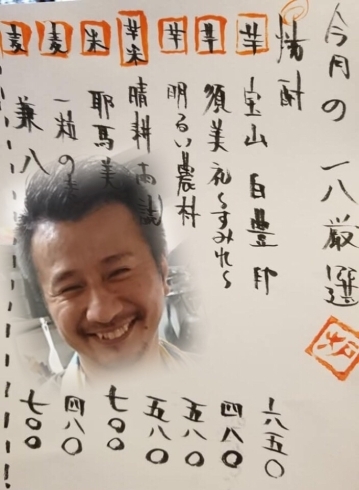 今月の一八厳選
焼酎
芋 宝山 白豊印 六五〇
芋 須美礼〜すみれ〜 四八〇
芋 明るい農村 五八〇
芋米 晴耕雨読 五八〇
米 耶馬美 七〇〇
麦 一粒の 四八〇
麦 兼八 七〇〇